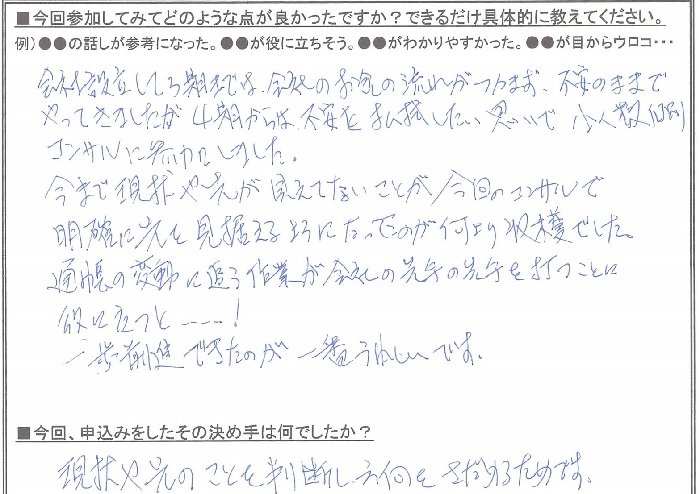 ■今回参加してみてどのような点が良かったですか？できるだけ具体的に教えてください。
例）●●の話しが参考になった。●●が役に立ちそう。●●がわかりやすかった。●●が目からウロコ・・・
会社を設立して3期までは、会社のお金の流れがつかめず、不安のままで
やってきましたが4期からは、不安を払拭したい思いで少人数(個別)
コンサルに参加しました。
今まで現状や先が見えてないことが今回のコンサルで
明確に先を見据えるようになったのが何より収穫でした。
通帳の変動に追う作業が会社の先手の先手を打つことに
役に立つと……！
一歩前進できたのが一番うれしいです。
■今回、申込みをしたその決め手は何でしたか？
現状や先のことを判断し方向をさだめるためです。